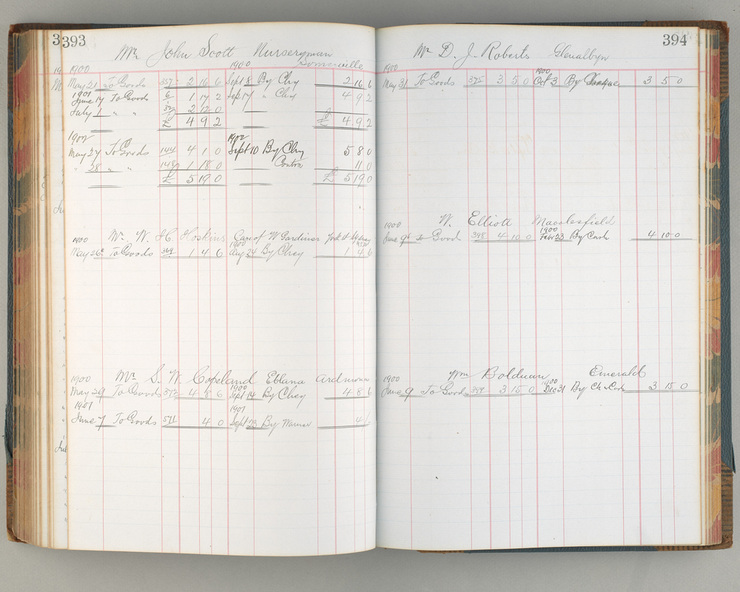 393
Mr John Scott Nurseryman
Somerville
1900 1900
May 21 To Goods 2 16 6 Sept 8 By Chq 2 16 6
1901
June 14 To Goods 1 17 2 Sept 7 " Chq 4 9 2
July 1 " " 2 12 0
£ 4 9 2 £ 4 9 2
1902 1902
May 27 To Goods 4 1 0 Sept 10 By Chq 5 8 0
" 28 " " 1 18 0 Contra 11 0
£ 5 19 0 £ 5 19 0
1900 Mr W. H. Hoskins Care of W Gardiner York St Sydney
1900
May 26 To Goods 1 4 6 Aug 24 By Chq 1 4 6
1900 Mr S. W. Copeland Eblana
1900
May 29 To Goods 4 8 6 Sept 14 By Chq 4 8 6
1901 1901
June 7 To Goods 4 0 Sept 23 By
394
1900 Mr D. J. Roberts Glenalbyn
1900
May 31 To Goods 3 5 0 Oct 3 By 3 5 0
1900 W. Elliott Macclesfield
1900
June 9 Good 4 10 0 Feb 23 By Cash 4 10 0
1900 Wm Bolduan Emerald
1900
June 9 To Goods 3 15 0 Dec 31 By 3 15 0